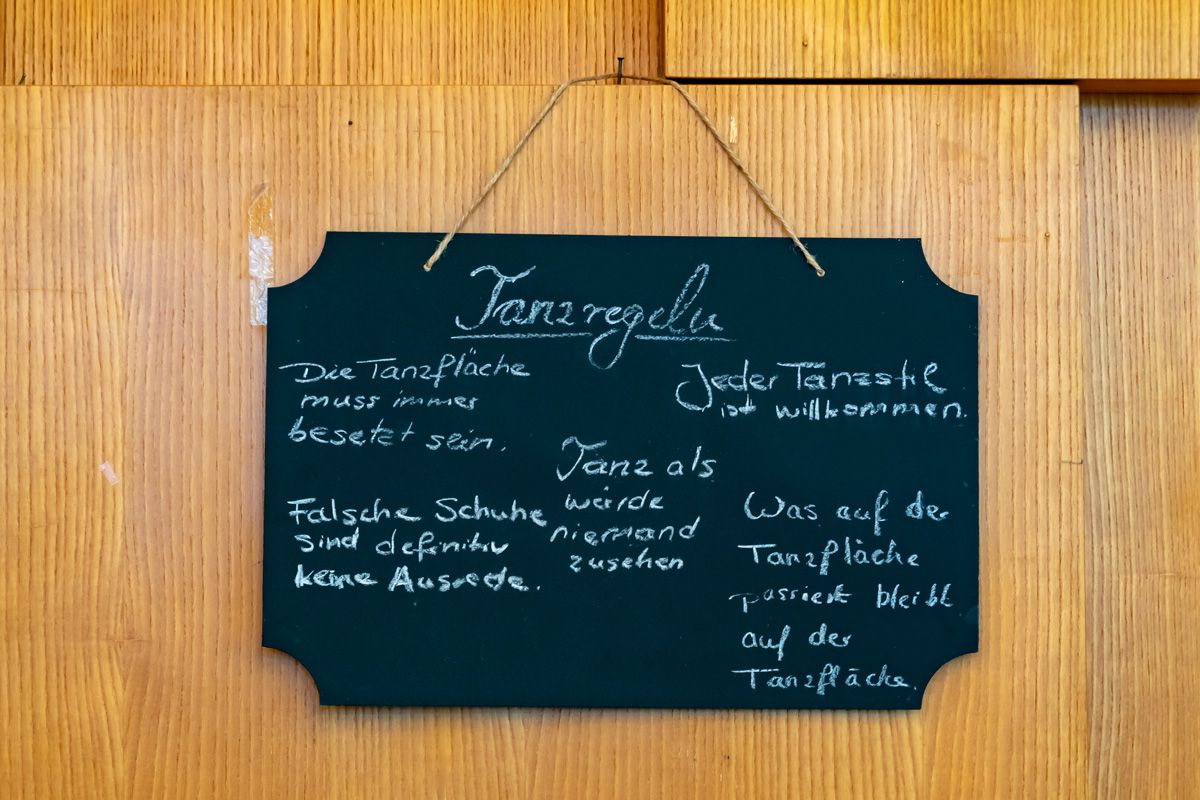 Tanzregeln
Die Tanzfläche
muss immer
besetzt sein.
Jeder Tanzstil
ist willkommen.
Tanz als
würde
niemand
zusehen
Falsche Schuhe
sind definitiv
keine Ausrede.
Was auf der
Tanzfläche
passiert bleibt
auf der
Tanzfläche.